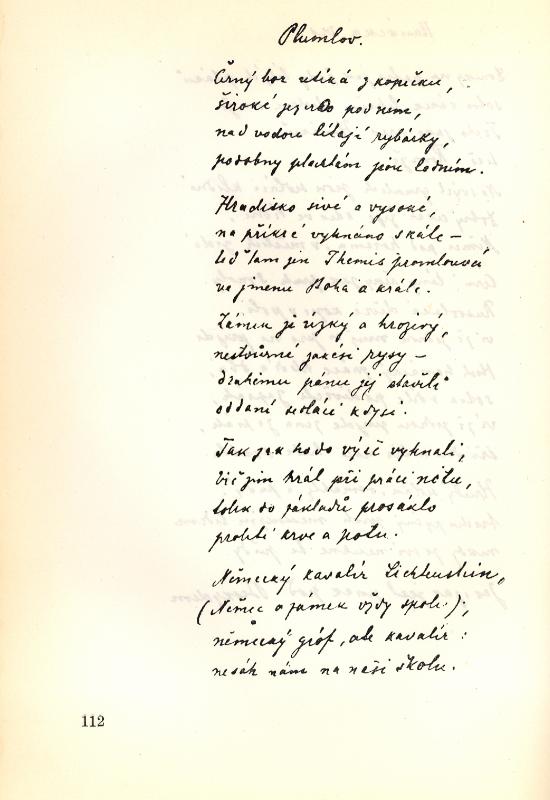 Plumlov.
Černý bor utíká z kopečku,
široké jezero pod ním,
nad vodou lítají rybárky,
podobny plachtám jsou lodním.
Hradisko sivé a vysoké,
na příkré vyhnáno skále –
teď tam jen Themis promlouvá
ve jmenu Boha a krále.
Zámek je úzký a hrozivý,
nestvůrné jakési rysy –
drahému pánu jej stavěli
oddaní sedláci kdysi.
Tak jak ho do výše vyhnali,
bič jim hrál při práci notu,
tolik do základů prosáklo
prolité krve a potu.
Německý kavalír Lichtenstein,
(Němec a zámek vždy spolu.),
německý gróf, ale kavalír:
nesáh nám na naši školu.
112